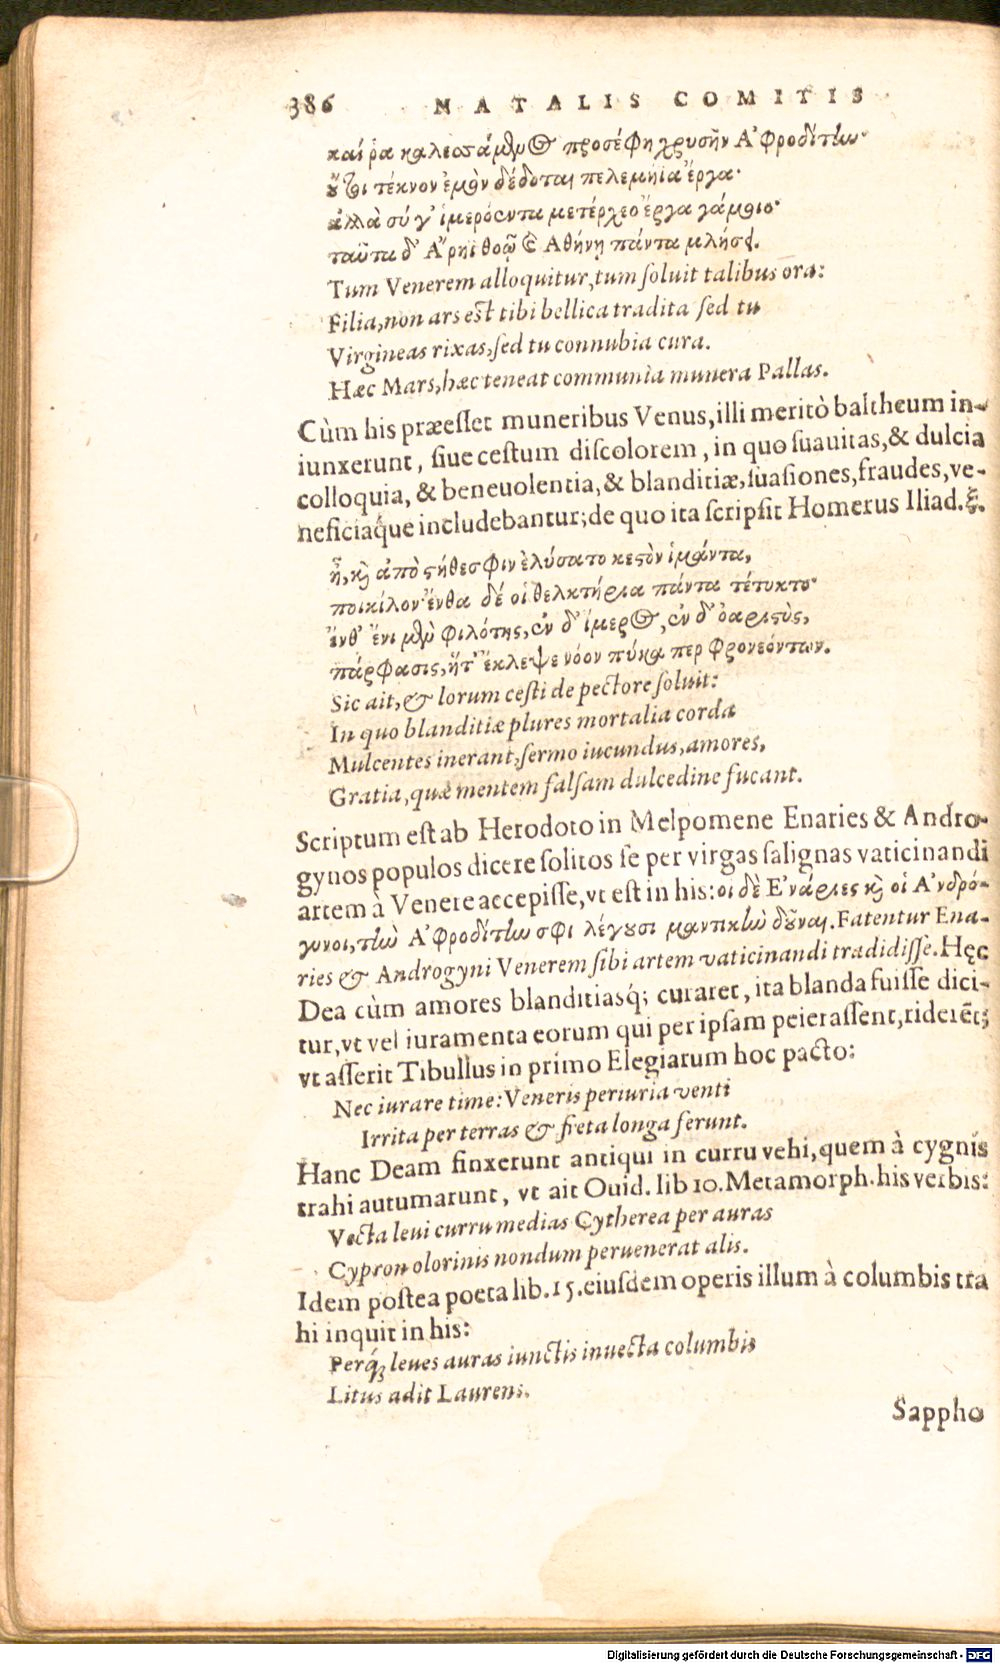 386 NATALIS COMITIS
καί ῥα καλεσσάμενος προσέφη χρυσῆν Ἀφροδίτην·
οὔ τοι τέκνον ἐμὸν δέδοται πελεμήϊα ἔργα·
ἀλλὰ σύ γ' ἱμερόεντα μετέρχεο ἔργα γάμοιο·
ταῦτα δ' Ἄρηϊ θοῷ καὶ Ἀθήνῃ πάντα μελήσει.
Tum Venerem alloquitur, tum soluit talibus ora:
Filia, non ars est tibi bellica tradita sed tu
Virgineas rixas, sed tu connubia cura.
Hæc Mars, hæc teneat communia munera Pallas.
Cùm his præesset muneribus Venus, illi meritò baltheum in-
iunxerunt, siue cestum discolorem, in quo suauitas, & dulcia
colloquia, & beneuolentia, & blanditiæ, suasiones, fraudes, ve-
neficiaq́ue includebantur; de quo ita scripsit Homerus Iliad. ξ.
ἦ, καὶ ἀπὸ στήθεσφιν ἐλύσατο κεστὸν ἱμάντα,
ποικίλον· ἔνθα δέ οἱ θελκτήρια πάντα τέτυκτο·
ἔνθ' ἔνι μὲν φιλότης, ἐν δ' ἵμερος, ἐν δ' ὀαριστὺς,
πάρφασις, ἥτ' ἔκλεψε νόον πύκα περ φρονεόντων.
Sic ait, & lorum cesti de pectore soluit:
In quo blanditiæ plures mortalia corda
Mulcentes inerant, sermo iucundus, amores,
Gratia, quæ mentem falsam dulcedine fucant.
Scriptum est ab Herodoto in Melpomene Enaries & Andro-
gynos populos dicere solitos se per virgas salignas vaticinandi
artem à Venere accepisse, vt est in his: οἱ δὲ Ἐνάριες καὶ οἱ Ἀνδρό-
γυνοι, τὴν Ἀφροδίτην σφι λέγουσι μαντικὴν δοῦναι. Fatentur Ena-
ries & Androgyni Venerem sibi artem vaticinandi tradidisse. Hęc
Dea cùm amores blanditiasq́; curaret, ita blanda fuisse dici-
tur, vt vel iuramenta eorum qui per ipsam peierassent, riderēt;
vt asserit Tibullus in primo Elegiarum hoc pacto:
Nec iurare time: Veneris periuria venti
Irrita per terras & freta longa ferunt.
Hanc Deam finxerunt antiqui in curru vehi, quem à cygnis
trahi autumarunt, vt ait Ouid. lib 10. Metamorph. his verbis:
Vecta leui curru medias Cytherea per auras
Cypron olorinis nondum peruenerat alis.
Idem postea poeta lib. 15. eiusdem operis illum à columbis tra
hi inquit in his:
Perq́; leues auras iunctis inuecta columbis
Litus adit Laurens.
Sappho
Digitalisierung gefördert durch die Deutsche Forschungsgemeinschaft - DFG